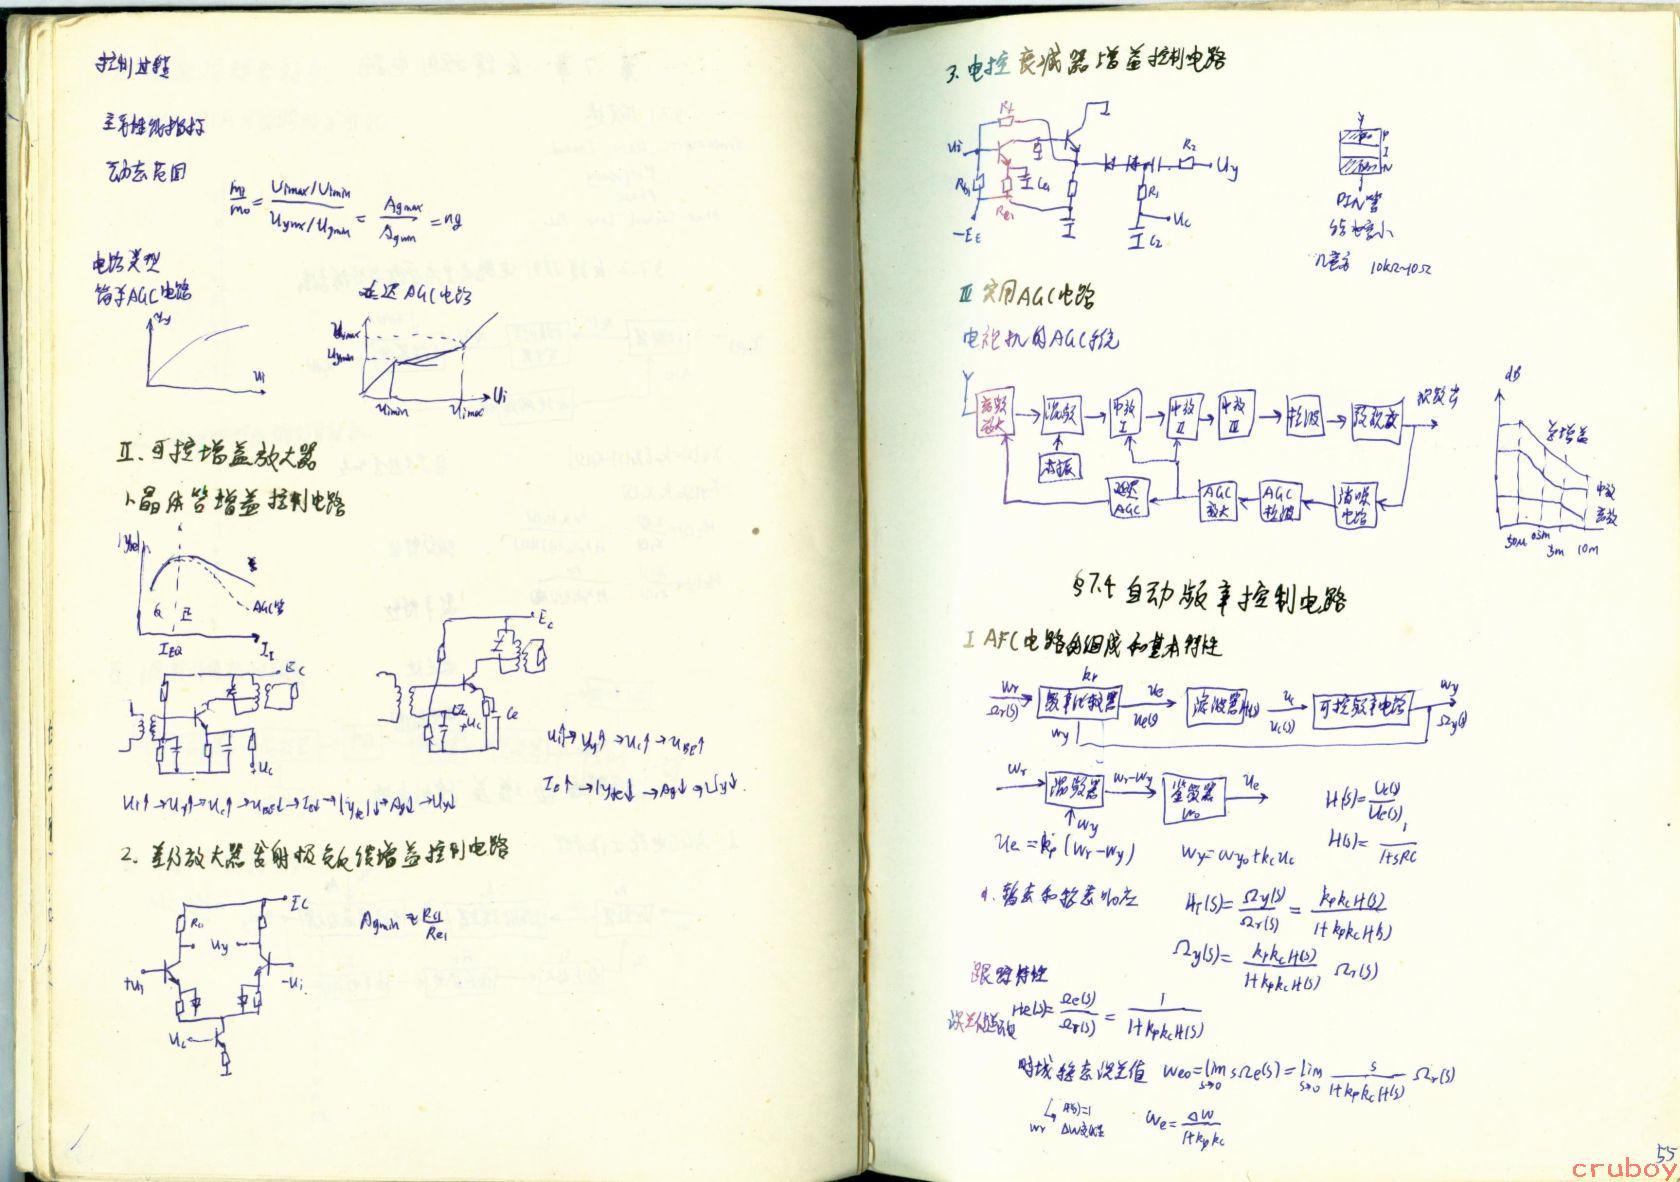 控制过程
主要性能指标
动态范围
mi/mo = (Uimax/Uimin)/(Uymax/Uymin) = Agmax/Agmin = ng
电路类型
简单AGC电路
延迟AGC电路
Uy
Ui
Uymax
Uymin
Uimin
Uimax
Ui
II. 可控增益放大器
1. 晶体管增益控制电路
AGC管
IEQ
IE
EC
Uc
EC
Ce
Uc
Ui↑→Uy↑→Uc↑→UBE↑
IE↑→|yfe|↓→Ag↓→Uy↓
Ui↑→Uy↑→Uc↑→UBE↓→IE↓→|yfe|↓→Ag↓→Uy↓
2. 差分放大器发射极负反馈增益控制电路
EC
Rc1
Uy
+Ui
-Ui
Uc
Agmin ≈ Rc1/Re1
3. 电控衰减器增益控制电路
Rf
Ui
Re1
-EE
R2
Uy
R1
Uc
C2
P
I
N
PIN管
结电容小
10kΩ~10Ω
III 实用AGC电路
电视机的AGC系统
高频放大
混频
中放I
中放II
中放III
检波
预视放
本振
延迟AGC
AGC放大
AGC检波
消噪电路
dB
总增益
中放
高放
50μ 0.5m 3m 10m
§7.4 自动频率控制电路
I AFC电路的组成和基本特性
ωr
Ωr(s)
kp
频率比较器
ue
ue(s)
滤波器H(s)
uc
uc(s)
可控频率电路
ωy
Ωy(s)
ωy
ωr
混频器
ωr-ωy
鉴频器
ω0
ue
ωy
H(s)=Uc(s)/Ue(s)
ue=kp(ωr-ωy)
ωy=ωy0+kcuc
H(s)=1/(1+sRC)
HT(s)=Ωy(s)/Ωr(s)=kpkcH(s)/(1+kpkcH(s))
Ωy(s)=kpkcH(s)/(1+kpkcH(s)) Ωr(s)
跟踪特性
He(s)=Ωe(s)/Ωr(s)=1/(1+kpkcH(s))
时域稳态误差值 ωe∞=lim s→0 sΩe(s)=lim s→0 s/(1+kpkcH(s)) Ωr(s)
H(s)=1
ωr
ωe=Δω/(1+kpkc)
55
cruboy